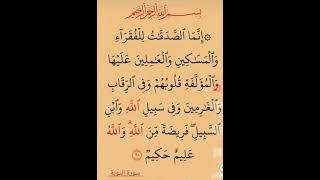 بسم الله الرحمن الرحيم
۞ إِنَّمَا ٱلصَّدَقَٰتُ لِلْفُقَرَآءِ
وَٱلْمَسَٰكِينِ وَٱلْعَٰمِلِينَ عَلَيْهَا
وَٱلْمُؤَلَّفَةِ قُلُوبُهُمْ وَفِى ٱلرِّقَابِ
وَٱلْغَٰرِمِينَ وَفِى سَبِيلِ ٱللَّهِ وَٱبْنِ
ٱلسَّبِيلِ ۖ فَرِيضَةً مِّنَ ٱللَّهِ ۗ وَٱللَّهُ
عَلِيمٌ حَكِيمٌ ٦٠
سورة التوبة